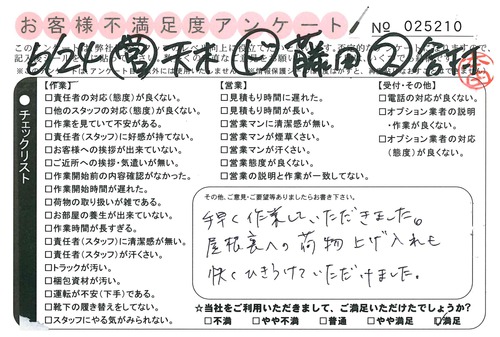 お客様不満足度アンケート
No 025210
チェックリスト
【作業】
□責任者の対応(態度)が良くない。
□他のスタッフの対応(態度)が良くない。
□作業を見ていて不安がある。
□責任者(スタッフ)に好感が持てない。
□お客様への挨拶が出来ていない。
□ご近所への挨拶・気遣いが無い。
□作業開始前の内容確認がなかった。
□作業開始時間が遅れた。
□荷物の取り扱いが雑である。
□お部屋の養生が出来ていない。
□作業時間が長すぎる。
□責任者(スタッフ)に清潔感が無い。
□責任者(スタッフ)が汗くさい。
□トラックが汚い。
□梱包資材が汚い。
□運転が不安(下手)である。
□靴下の履き替えをしてない。
□スタッフにやる気がみられない。
【営業】
□見積もり時間に遅れた。
□見積もり時間が長い。
□営業マンに清潔感が無い。
□営業マンが煙草くさい。
□営業マンが汗くさい。
□営業態度が良くない。
□営業の説明と作業が一致してない。
【受付・その他】
□電話の対応が良くない。
□オプション業者の説明
・作業が良くない。
□オプション業者の対応
(態度)が良くない。
その他、ご意見・ご要望等ありましたらお書き下さい。
早く作業していただきました。
屋根裏への荷物上げ入れも
快くひきうけていただけました。
☆当社をご利用いただきまして、ご満足いただけたでしょうか?
□不満 □やや不満 □普通 □やや満足 □満足